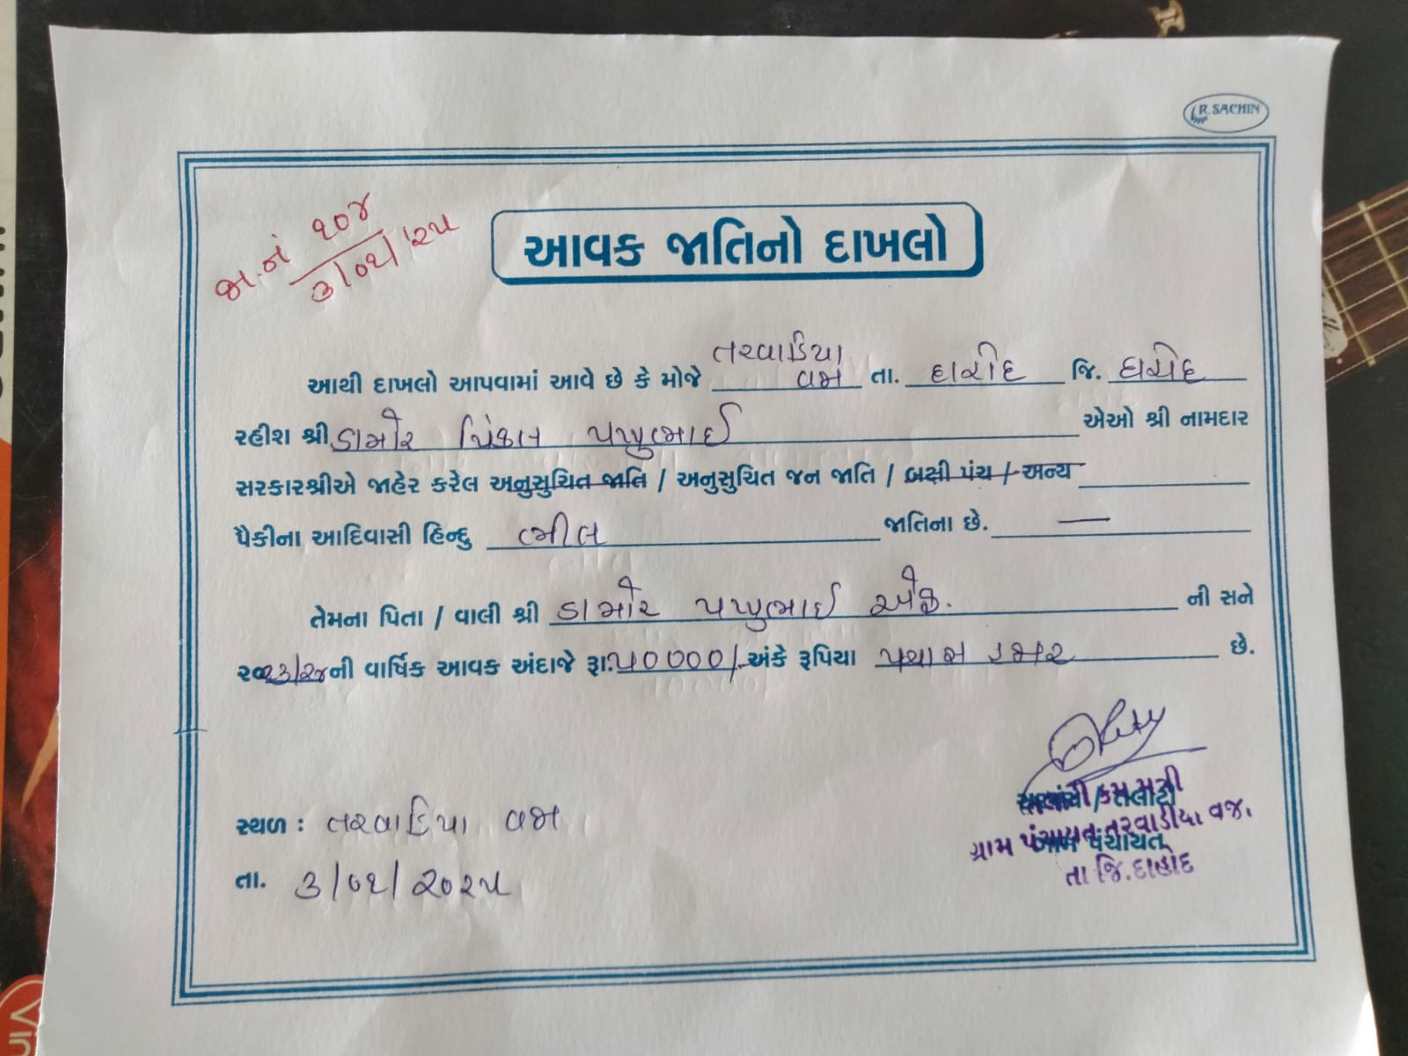 R. SACHIN
જા.નં ૧૦૪
૩/૦૧/૨૫
આવક જાતિનો દાખલો
તરવાડિયા
આથી દાખલો આપવામાં આવે છે કે મોજે વજા તા. દાહોદ જિ. દાહોદ
રહીશ શ્રી ડામોર પિંકલ પખુભાઈ એઓ શ્રી નામદાર
સરકારશ્રીએ જાહેર કરેલ અનુસુચિત જાતિ / અનુસુચિત જન જાતિ / બક્ષી પંચ / અન્ય
પૈકીના આદિવાસી હિન્દુ ભીલ જાતિના છે. —
તેમના પિતા / વાલી શ્રી ડામોર પખુભાઈ એફ. ની સને
૨૦૨૩/૨૪ની વાર્ષિક આવક અંદાજે રૂા.૫૦૦૦૦/- અંકે રૂપિયા પચાસ હજાર છે.
સ્થળ : તરવાડિયા વજા
તા. ૩/૦૧/૨૦૨૫
તલાટી કમ મંત્રી
ગ્રામ પંચાયત તરવાડીયા વજા.
તા.જિ.દાહોદ